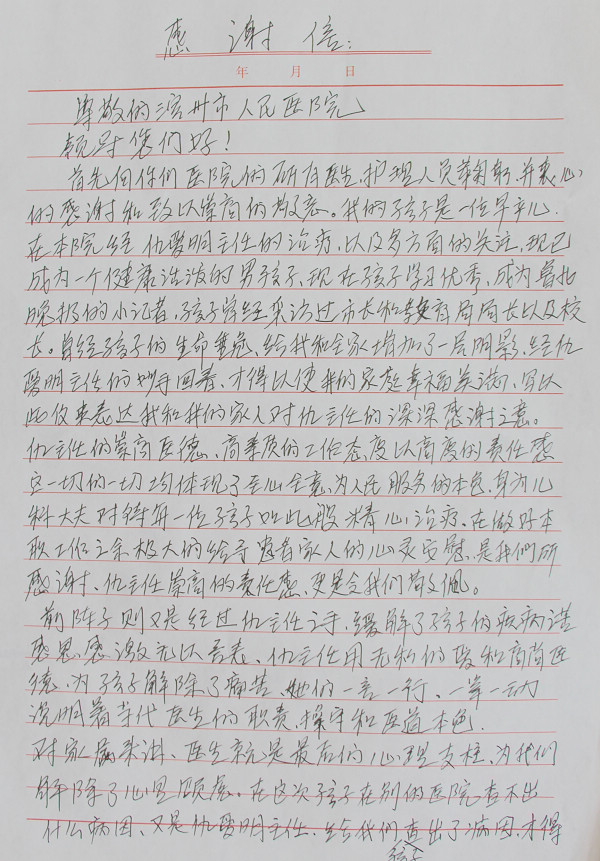 感谢信：
年 月 日
尊敬的滨州市人民医院
领导您们好！
首先向你们医院的所有医生、护理人员鞠躬、并衷心
的感谢和致以崇高的敬意。我的孩子是一位早产儿.
在本院经仇爱明主任的治疗，以及多方面的关注，现已
成为一个健康活泼的男孩子，现在孩子学习优秀，成为鲁北
晚报的小记者，孩子曾经采访过市长和教育局局长以及校
长。曾经孩子的生命垂危、给我和全家增加了一层阴影、经仇
爱明主任的妙手回春、才得以使我的家庭幸福美满、写以
此信来表达我和我的家人对仇主任的深深感谢之意。
仇主任的崇高医德、高素质的工作态度以高度的责任感
它一切的一切均体现了全心全意、为人民服务的本色、身为儿
科大夫对待每一位孩子如此般精心治疗、在做好本
职工作之余极大的给予患者家人的心灵安慰、是我们所
感谢、仇主任崇高的责任感、更是令我们敬佩。
前阵子则又是经过仇主任之手、缓解了孩子的疾病诺
感恩、感激无以言表、仇主任用无私的爱和高尚医
德、为孩子解除了痛苦、她们的一言一行、一举一动
说明着当代医生的职责、操守和医道本色.
对家属来讲、医生就是最后的心理支柱、为我们
解除了心里顾虑。在这次孩子在别的医院查不出
什么病因、又是仇爱明主任、给我们查出了病因、才得
孩子